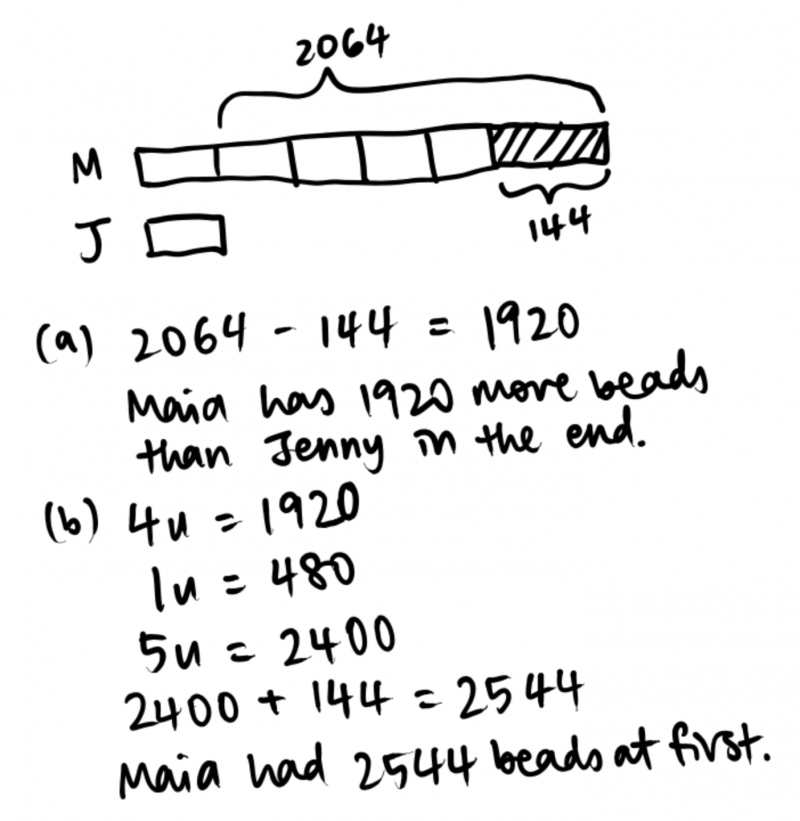 2064
M
144
J
(a) 2064 - 144 = 1920
Maia has 1920 more beads
than Jenny in the end.
(b) 4u = 1920
1u = 480
5u = 2400
2400 + 144 = 2544
Maia had 2544 beads at first.